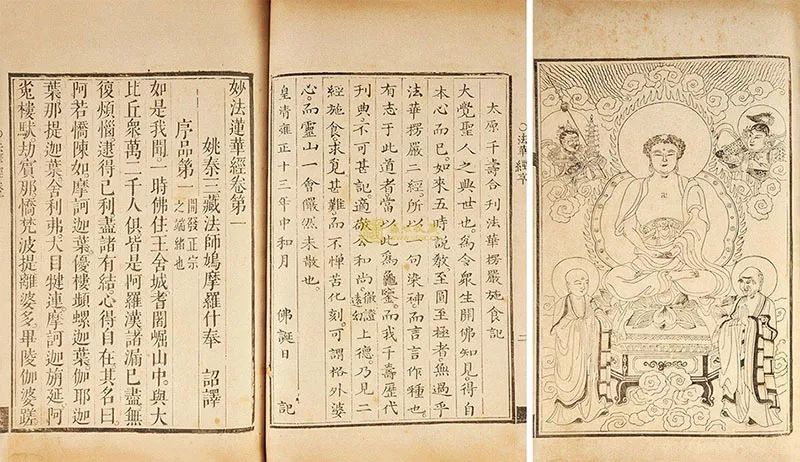 法華經序
太原千壽合刋法華楞嚴施食記
大覺聖人之興世也。爲令衆生開佛知見得自
本心而已。如來五時說教。至圓至極者。無過乎
法華楞嚴二經。所以一句染神而言言作種也。
有志于此道者。當以此爲龜鑒。而我千壽歷代
刋典。不可甚記。適公和尚徹證上德。乃見二
經施食。求覓甚難。而不憚苦化刻。可謂格外婆
心。而靈山一會。儼然未散也。
皇清雍正十三年中和月 佛誕日 記
二
妙法蓮華經卷第一
姚秦三藏法師鳩摩羅什奉 詔譯
序品第一 開發正宗之端緒也
如是我聞。一時佛住王舍城耆闍崛山中。與大
比丘衆萬二千人俱。皆是阿羅漢。諸漏已盡。無
復煩惱。逮得己利。盡諸有結。心得自在。其名曰。
阿若憍陳如。摩訶迦葉。優樓頻螺迦葉。伽耶迦
葉。那提迦葉。舍利弗。大目犍連。摩訶迦旃延。阿
㝹樓馱。劫賓那。憍梵波提。離婆多。畢陵伽婆蹉